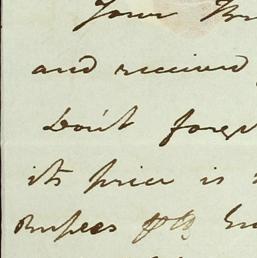 Your
and received
Don't forg
its price is
Rupees